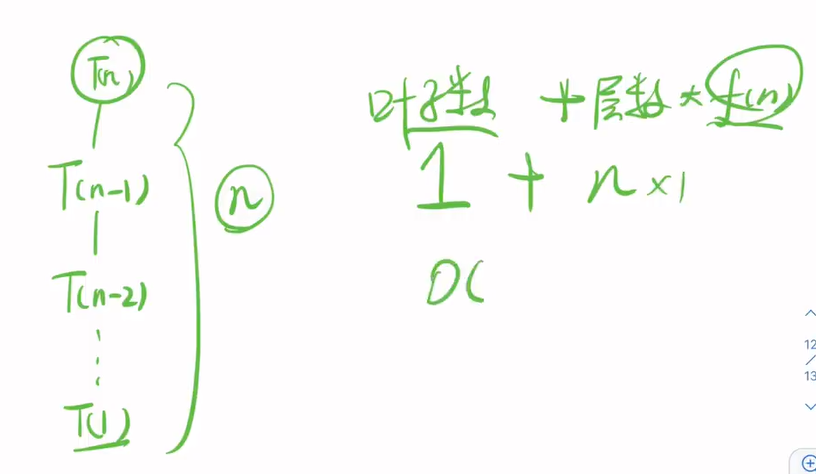 T(n)
T(n-1)
T(n-2)
T(1)
n
叶子数 + 层数 * f(n)
1 + n × 1
O(
12
/
13